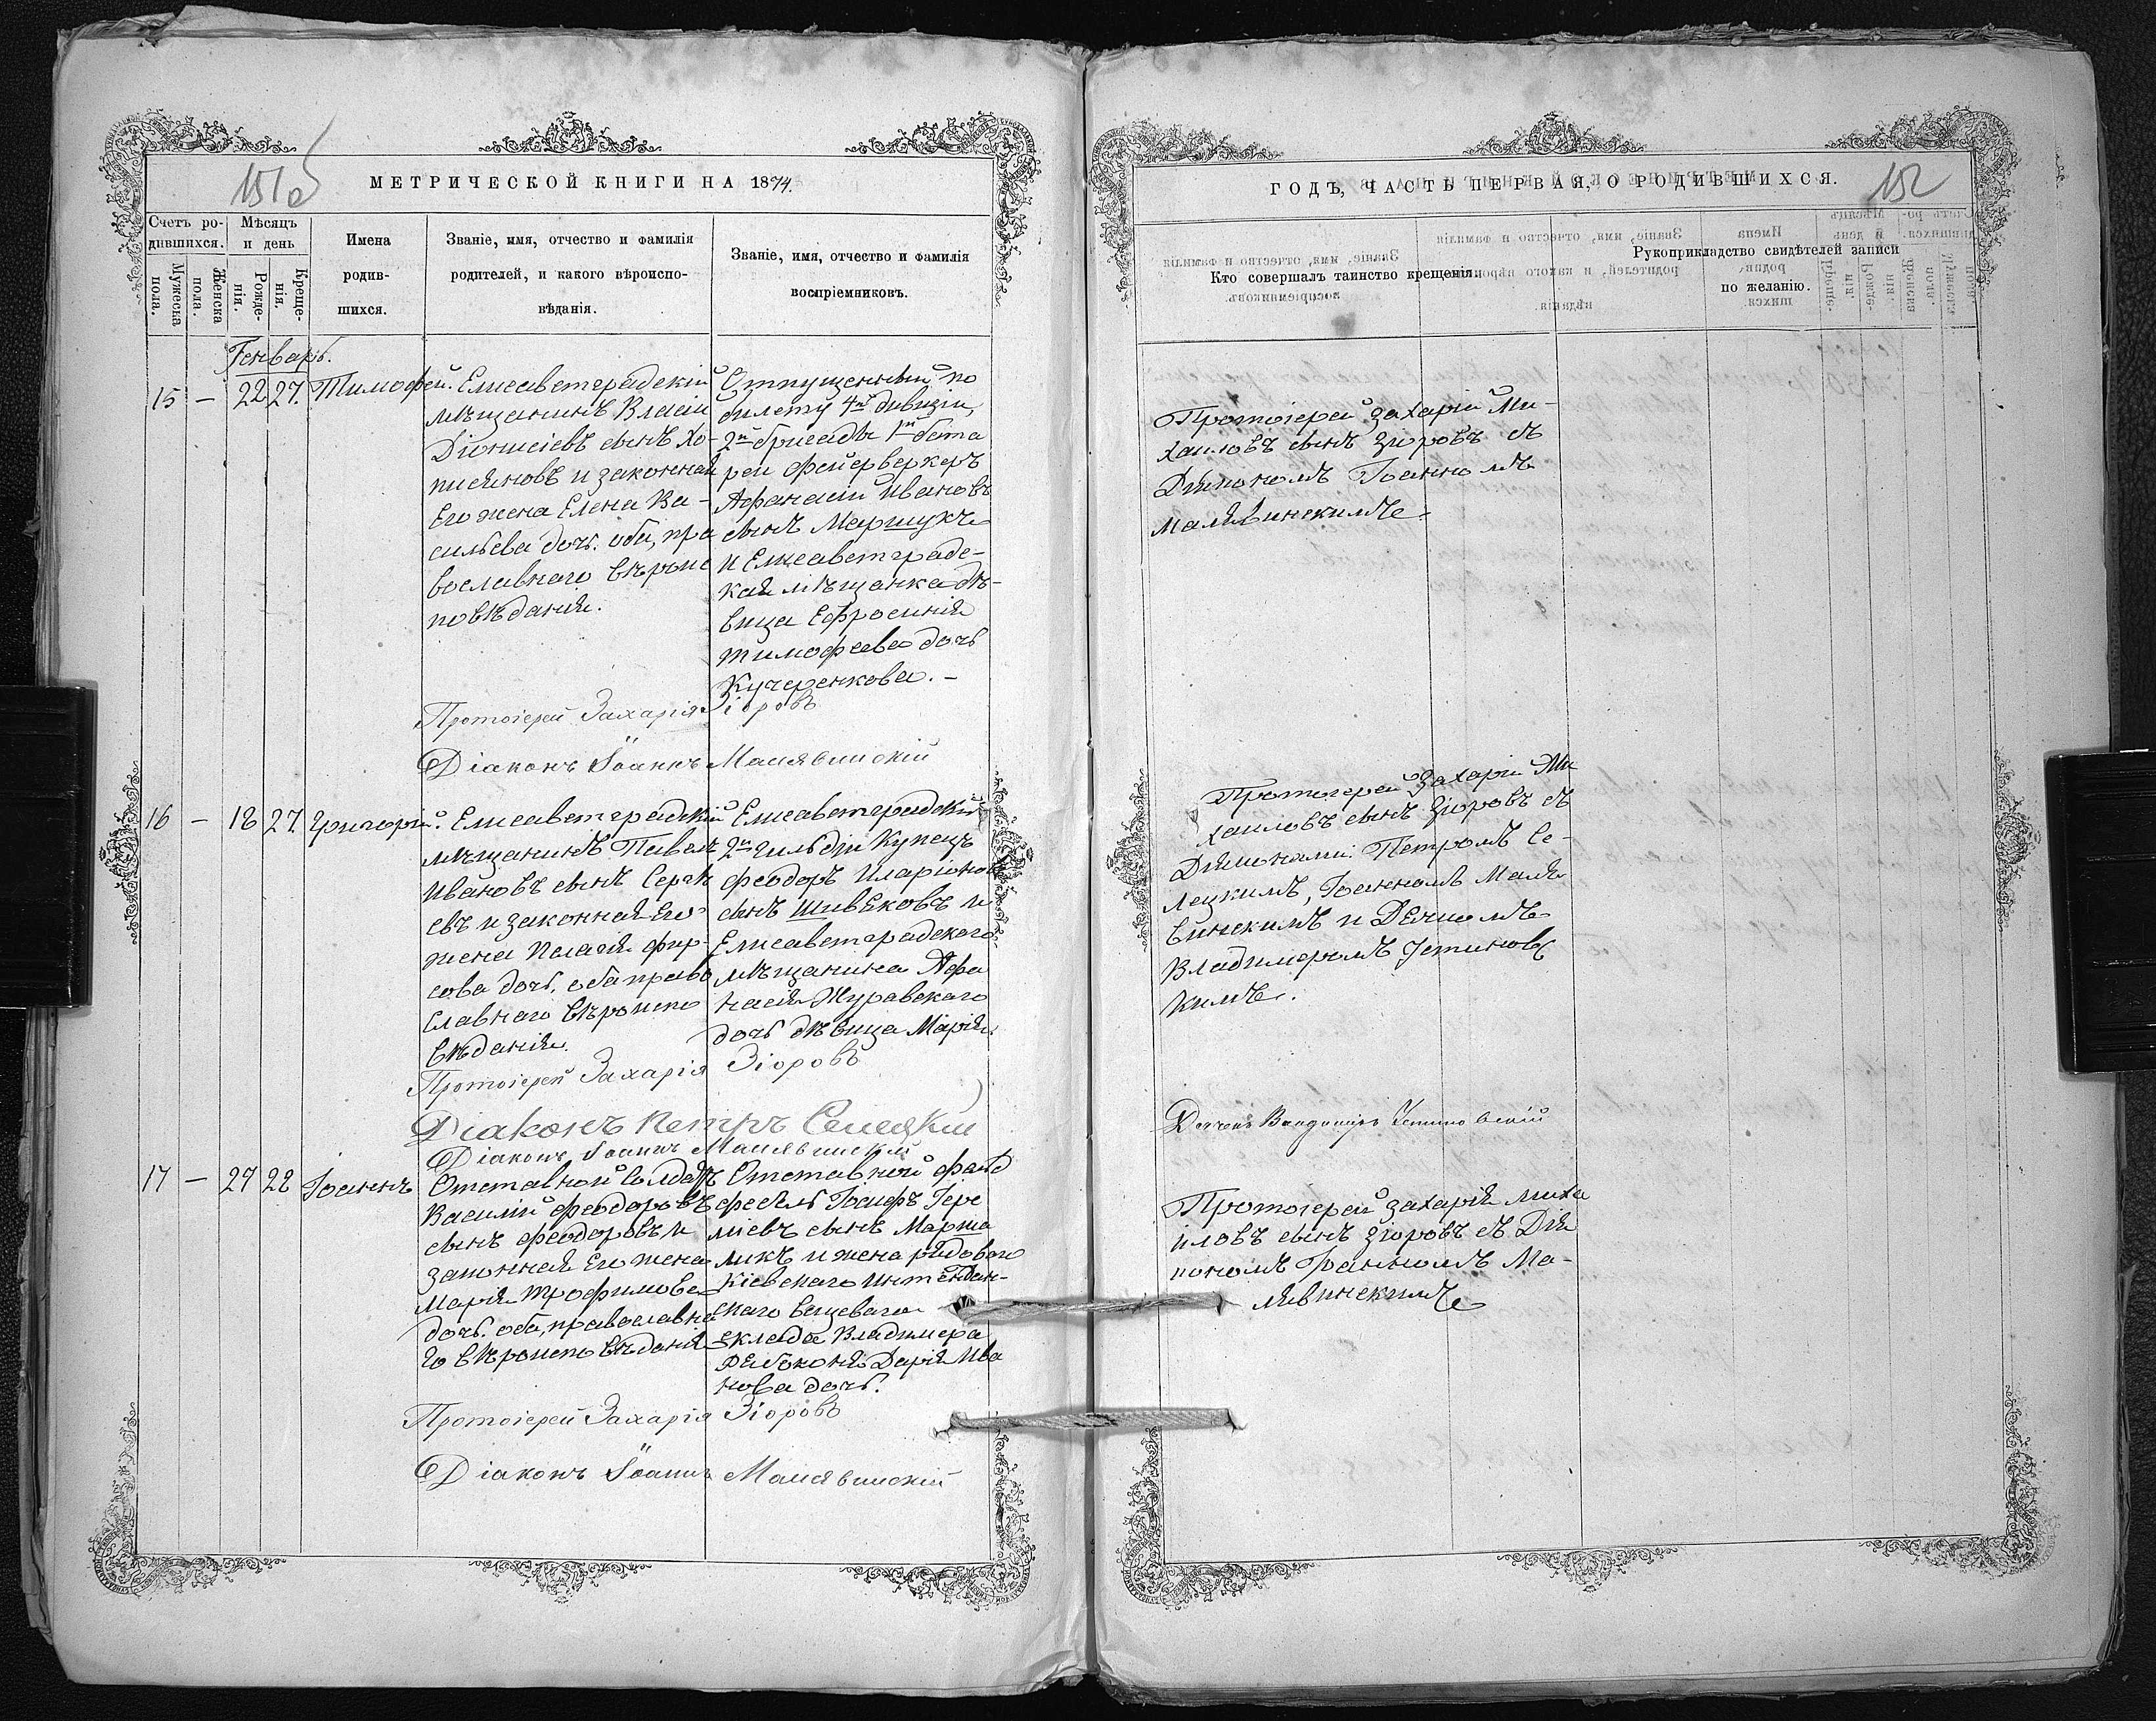 151об
МЕТРИЧЕСКОЙ КНИГИ НА 1874.
Счетъ ро-
дившихся.
Мужеска
пола.
Женска
пола.
Мѣсяцъ
и день
Рожде-
нія.
Креще-
нія.
Имена
родив-
шихся.
Званіе, имя, отчество и фамилія
родителей, и какого вѣроиспо-
вѣданія.
Званіе, имя, отчество и фамилія
воспріемниковъ.
Генварь.
15 — 22 27. Тимофей.
Елисаветградскій
мѣщанинъ Власій
Діонисіевъ сынъ
и законная
Его жена Елена Ва-
сильева дочь. оба, пра
вославнаго вѣроис
повѣданія.
Отпущенный по
билету 4й дивизіи,
2й бригады 1й бата
реи фейерверкеръ
Афанасій Ивановъ
сынъ Марщукъ
и Елисаветградс-
кая мѣщанка дѣ-
вица Ефросинія
Тимофеева дочь
Кучеренкова. –
Протоіерей Захарія Зіоровъ
Діаконъ Іоаннъ Малявинскій
16 — 18 27. Григорій.
Елисаветградскій
мѣщанинъ Павелъ
Ивановъ сынъ Сергѣ
евъ и законная Его
жена Пелагія Фир-
сова дочь. оба право
славнаго вѣроиспо
вѣданія.
Елисаветградскій
2й гильдіи Купецъ
Феодоръ Иларіоновъ
сынъ Шивековъ и
Елисаветградскаго
мѣщанина Афа
насія Журавскаго
дочь дѣвица Марія.
Протоіерей Захарія Зіоровъ
Діаконъ Петръ Селецкій
Діаконъ Іоаннъ Малявинскій
17 — 27 28 Іоаннъ
Отставной Солдатъ
Василій Феодоровъ
сынъ Феодоровъ и
законная Его жена
Марія Трофимова
дочь. оба, православна
го вѣроисповѣданія
Отставной фелд
фебель Іосифъ Іере
міевъ сынъ
и жена рядового
Кіевскаго Интендан-
скаго вещеваго
склада Владимера
Дарія Ива
нова дочь.
Протоіерей Захарія Зіоровъ
Діаконъ Іоаннъ Малявинскій
ГОДЪ, ЧАСТЬ ПЕРВАЯ, О РОДИВШИХСЯ.
152
Кто совершалъ таинство крещенія.
Рукоприкладство свидѣтелей записи
по желанію.
Протоіерей Захарій Ми-
хаиловъ сынъ Зіоровъ съ
Діякономъ Іоанномъ
Малявинскимъ.
Протоіерей Захарій Ми
хаиловъ сынъ Зіоровъ съ
Діяконами: Петромъ Се-
лецкимъ, Іоанномъ Маля
винскимъ и Дячкомъ
Владимеромъ Устиновс
кимъ.
Дячекъ Владимиръ Устиновскій
Протоіерей Захарія Миха
иловъ сынъ Зіоровъ съ Дія
кономъ Іоанномъ Ма-
лявинскимъ